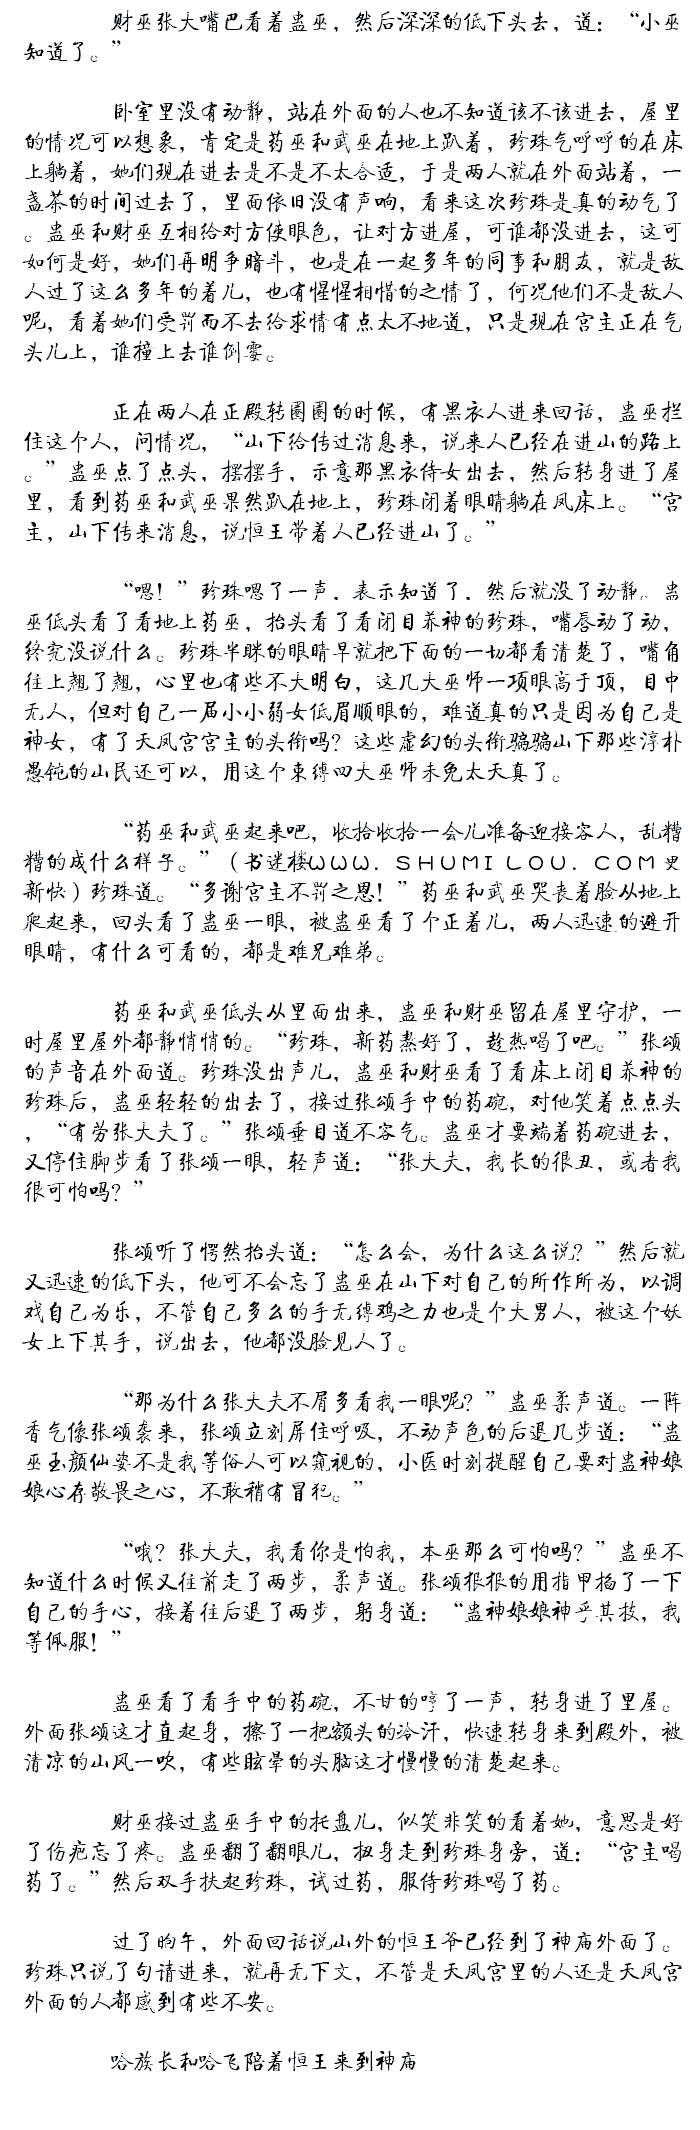 财巫张大嘴巴看着蛊巫，然后深深的低下头去，道：“小巫
知道了。”
卧室里没有动静，站在外面的人也不知道该不该进去，屋里
的情况可以想象，肯定是药巫和武巫在地上趴着，珍珠气呼呼的在床
上躺着，她们现在进去是不是不太合适，于是两人就在外面站着，一
盏茶的时间过去了，里面依旧没有声响，看来这次珍珠是真的动气了
。蛊巫和财巫互相给对方使眼色，让对方进屋，可谁都没进去，这可
如何是好，她们再明争暗斗，也是在一起多年的同事和朋友，就是敌
人过了这么多年的着儿，也有惺惺相惜的之情了，何况他们不是敌人
呢，看着她们受罚而不去给求情有点太不地道，只是现在宫主正在气
头儿上，谁撞上去谁倒霉。
正在两人在正殿转圈圈的时候，有黑衣人进来回话，蛊巫拦
住这个人，问情况，“山下给传过消息来，说来人已经在进山的路上
。”蛊巫点了点头，摆摆手，示意那黑衣侍女出去，然后转身进了屋
里，看到药巫和武巫果然趴在地上，珍珠闭着眼睛躺在凤床上。“宫
主，山下传来消息，说恒王带着人已经进山了。”
“嗯！”珍珠嗯了一声，表示知道了，然后就没了动静。蛊
巫低头看了看地上药巫，抬头看了看闭目养神的珍珠，嘴唇动了动，
终究没说什么。珍珠半眯的眼睛早就把下面的一切都看清楚了，嘴角
往上翘了翘，心里也有些不大明白，这几大巫师一项眼高于顶，目中
无人，但对自己一届小小弱女低眉顺眼的，难道真的只是因为自己是
神女，有了天凤宫宫主的头衔吗？这些虚幻的头衔骗骗山下那些淳朴
愚钝的山民还可以，用这个束缚四大巫师未免太天真了。
“药巫和武巫起来吧，收拾收拾一会儿准备迎接客人，乱糟
糟的成什么样子。”（书迷楼ＷＷＷ．ＳＨＵＭＩＬＯＵ．ＣＯＭ更
新快）珍珠道。“多谢宫主不罚之恩！”药巫和武巫哭丧着脸从地上
爬起来，回头看了蛊巫一眼，被蛊巫看了个正着儿，两人迅速的避开
眼睛，有什么可看的，都是难兄难弟。
药巫和武巫低头从里面出来，蛊巫和财巫留在屋里守护，一
时屋里屋外都静悄悄的。“珍珠，新药熬好了，趁热喝了吧。”张颂
的声音在外面道。珍珠没出声儿，蛊巫和财巫看了看床上闭目养神的
珍珠后，蛊巫轻轻的出去了，接过张颂手中的药碗，对他笑着点点头
，“有劳张大夫了。”张颂垂目道不客气。蛊巫才要端着药碗进去，
又停住脚步看了张颂一眼，轻声道：“张大夫，我长的很丑，或者我
很可怕吗？”
张颂听了愕然抬头道：“怎么会，为什么这么说？”然后就
又迅速的低下头，他可不会忘了蛊巫在山下对自己的所作所为，以调
戏自己为乐，不管自己多么的手无缚鸡之力也是个大男人，被这个妖
女上下其手，说出去，他都没脸见人了。
“那为什么张大夫不屑多看我一眼呢？”蛊巫柔声道。一阵
香气像张颂袭来，张颂立刻屏住呼吸，不动声色的后退几步道：“蛊
巫玉颜仙姿不是我等俗人可以窥视的，小医时刻提醒自己要对蛊神娘
娘心存敬畏之心，不敢稍有冒犯。”
“哦？张大夫，我看你是怕我，本巫那么可怕吗？”蛊巫不
知道什么时候又往前走了两步，柔声道。张颂狠狠的用指甲掐了一下
自己的手心，接着往后退了两步，躬身道：“蛊神娘娘神乎其技，我
等佩服！”
蛊巫看了看手中的药碗，不甘的哼了一声，转身进了里屋。
外面张颂这才直起身，擦了一把额头的冷汗，快速转身来到殿外，被
清凉的山风一吹，有些眩晕的头脑这才慢慢的清楚起来。
财巫接过蛊巫手中的托盘儿，似笑非笑的看着她，意思是好
了伤疤忘了疼。蛊巫翻了翻眼儿，扭身走到珍珠身旁，道：“宫主喝
药了。”然后双手扶起珍珠，试过药，服侍珍珠喝了药。
过了晌午，外面回话说山外的恒王爷已经到了神庙外面了。
珍珠只说了句请进来，就再无下文，不管是天凤宫里的人还是天凤宫
外面的人都感到有些不安。
哈族长和哈飞陪着恒王来到神庙